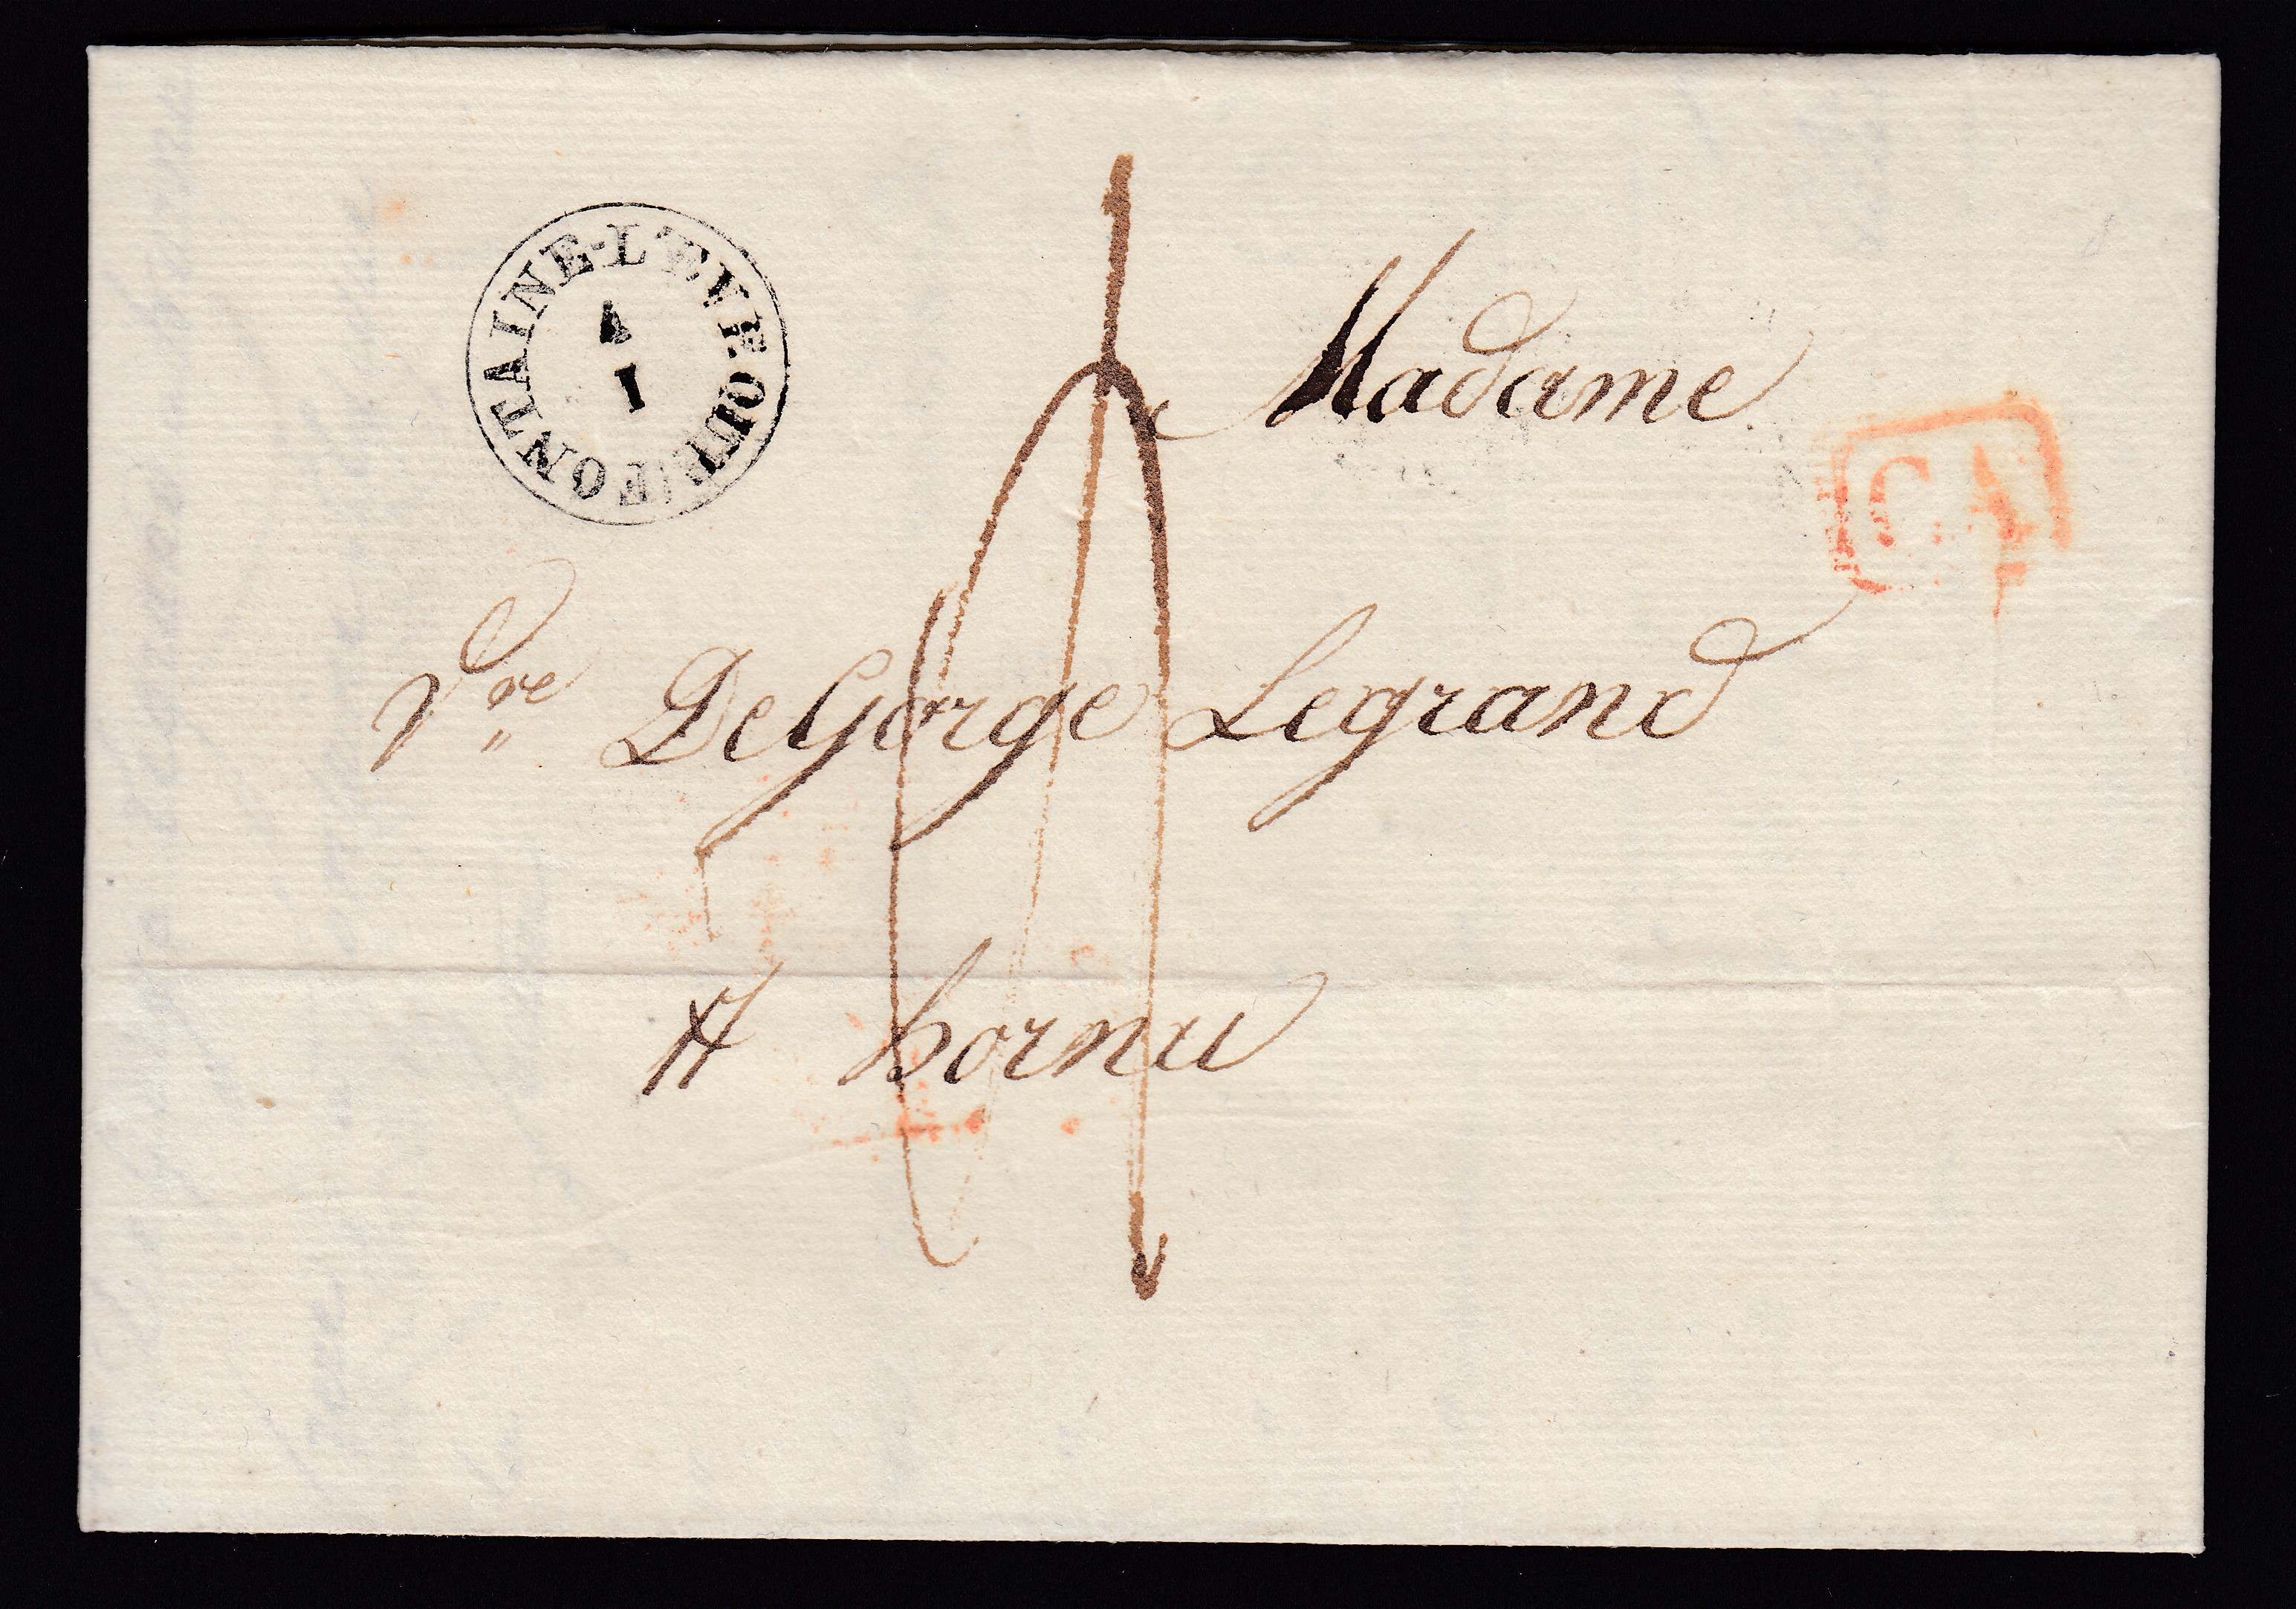 FONTAINE-L'EVEQUE
4
1
Madame
C A
Vve DeGorge Legrand
A hornu